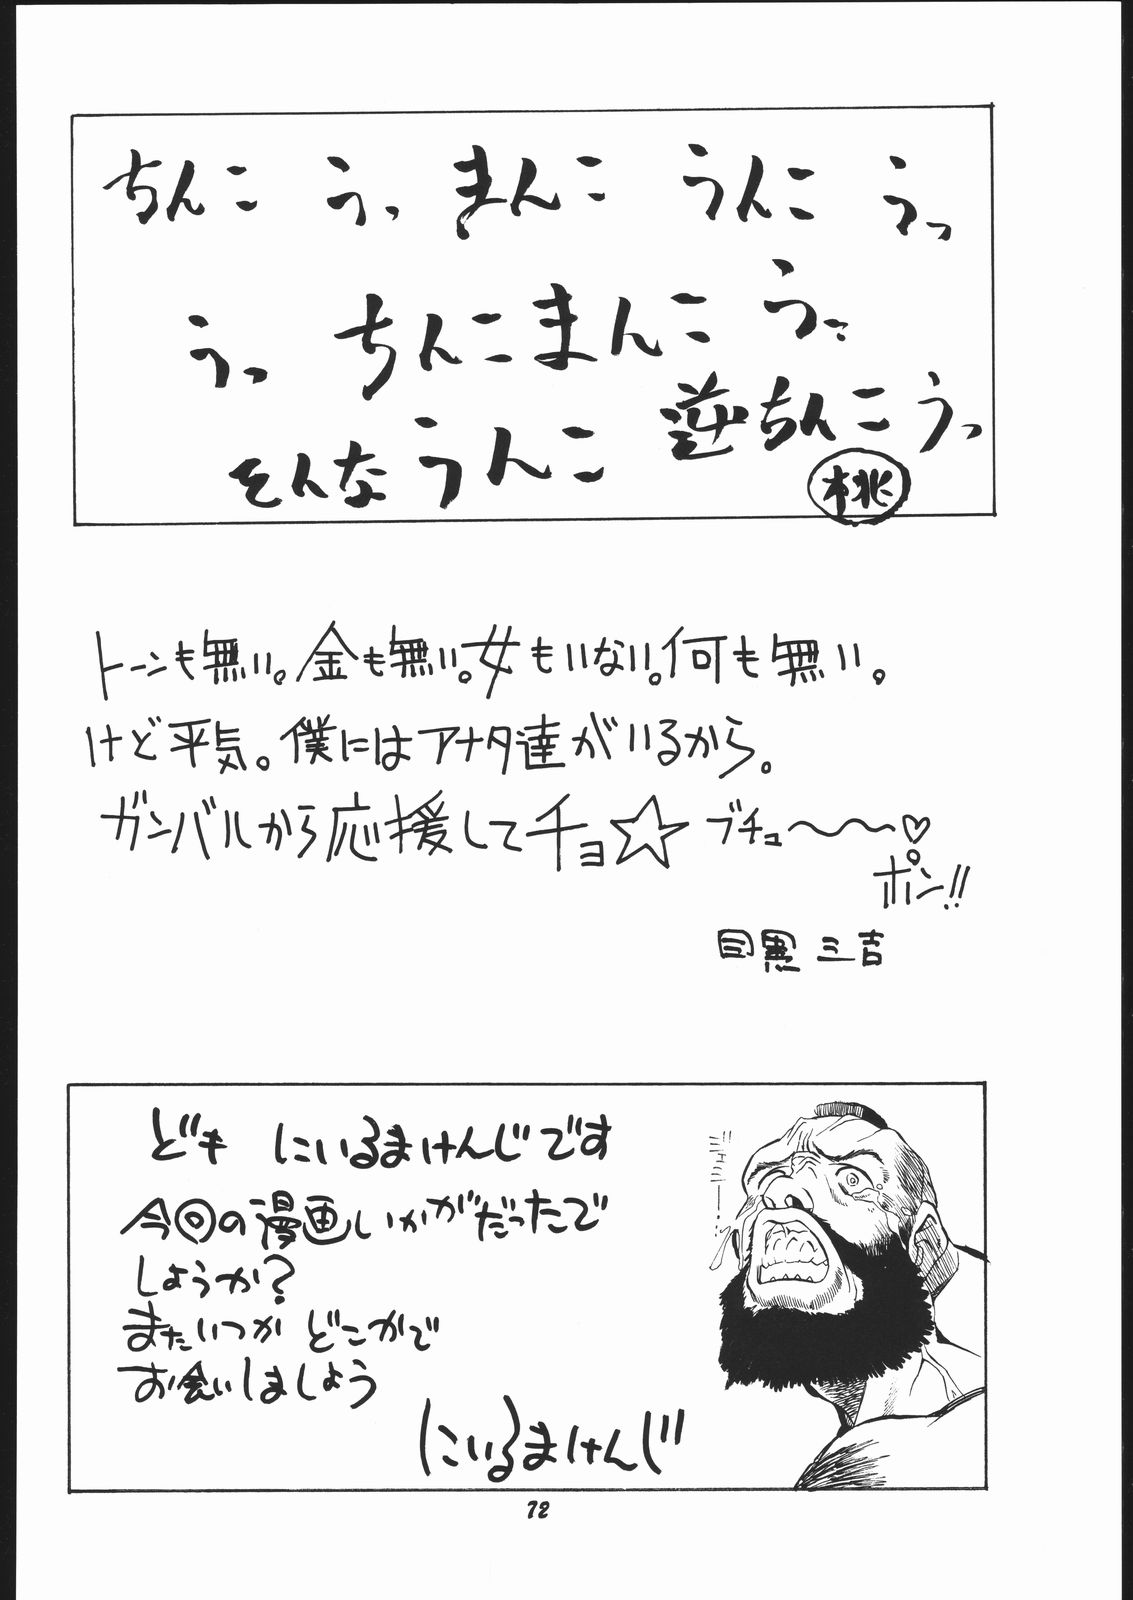 ちんこ うっ まんこ うんこ うっ
うっ ちんこまんこ うっ
そんなうんこ 逆ちんこうっ
桃
トーンも無い。金も無い。女もいない。何も無い。
けど平気。僕にはアナタ達がいるから。
ガンバルから応援してチョ☆ ブチュ〜〜♡
ポン!!
目黒 三吉
ども にいるまけんじです
今回の漫画いかがだったで
しょうか?
またいつか どこかで
お会いしましょう
にいるまけんじ
72